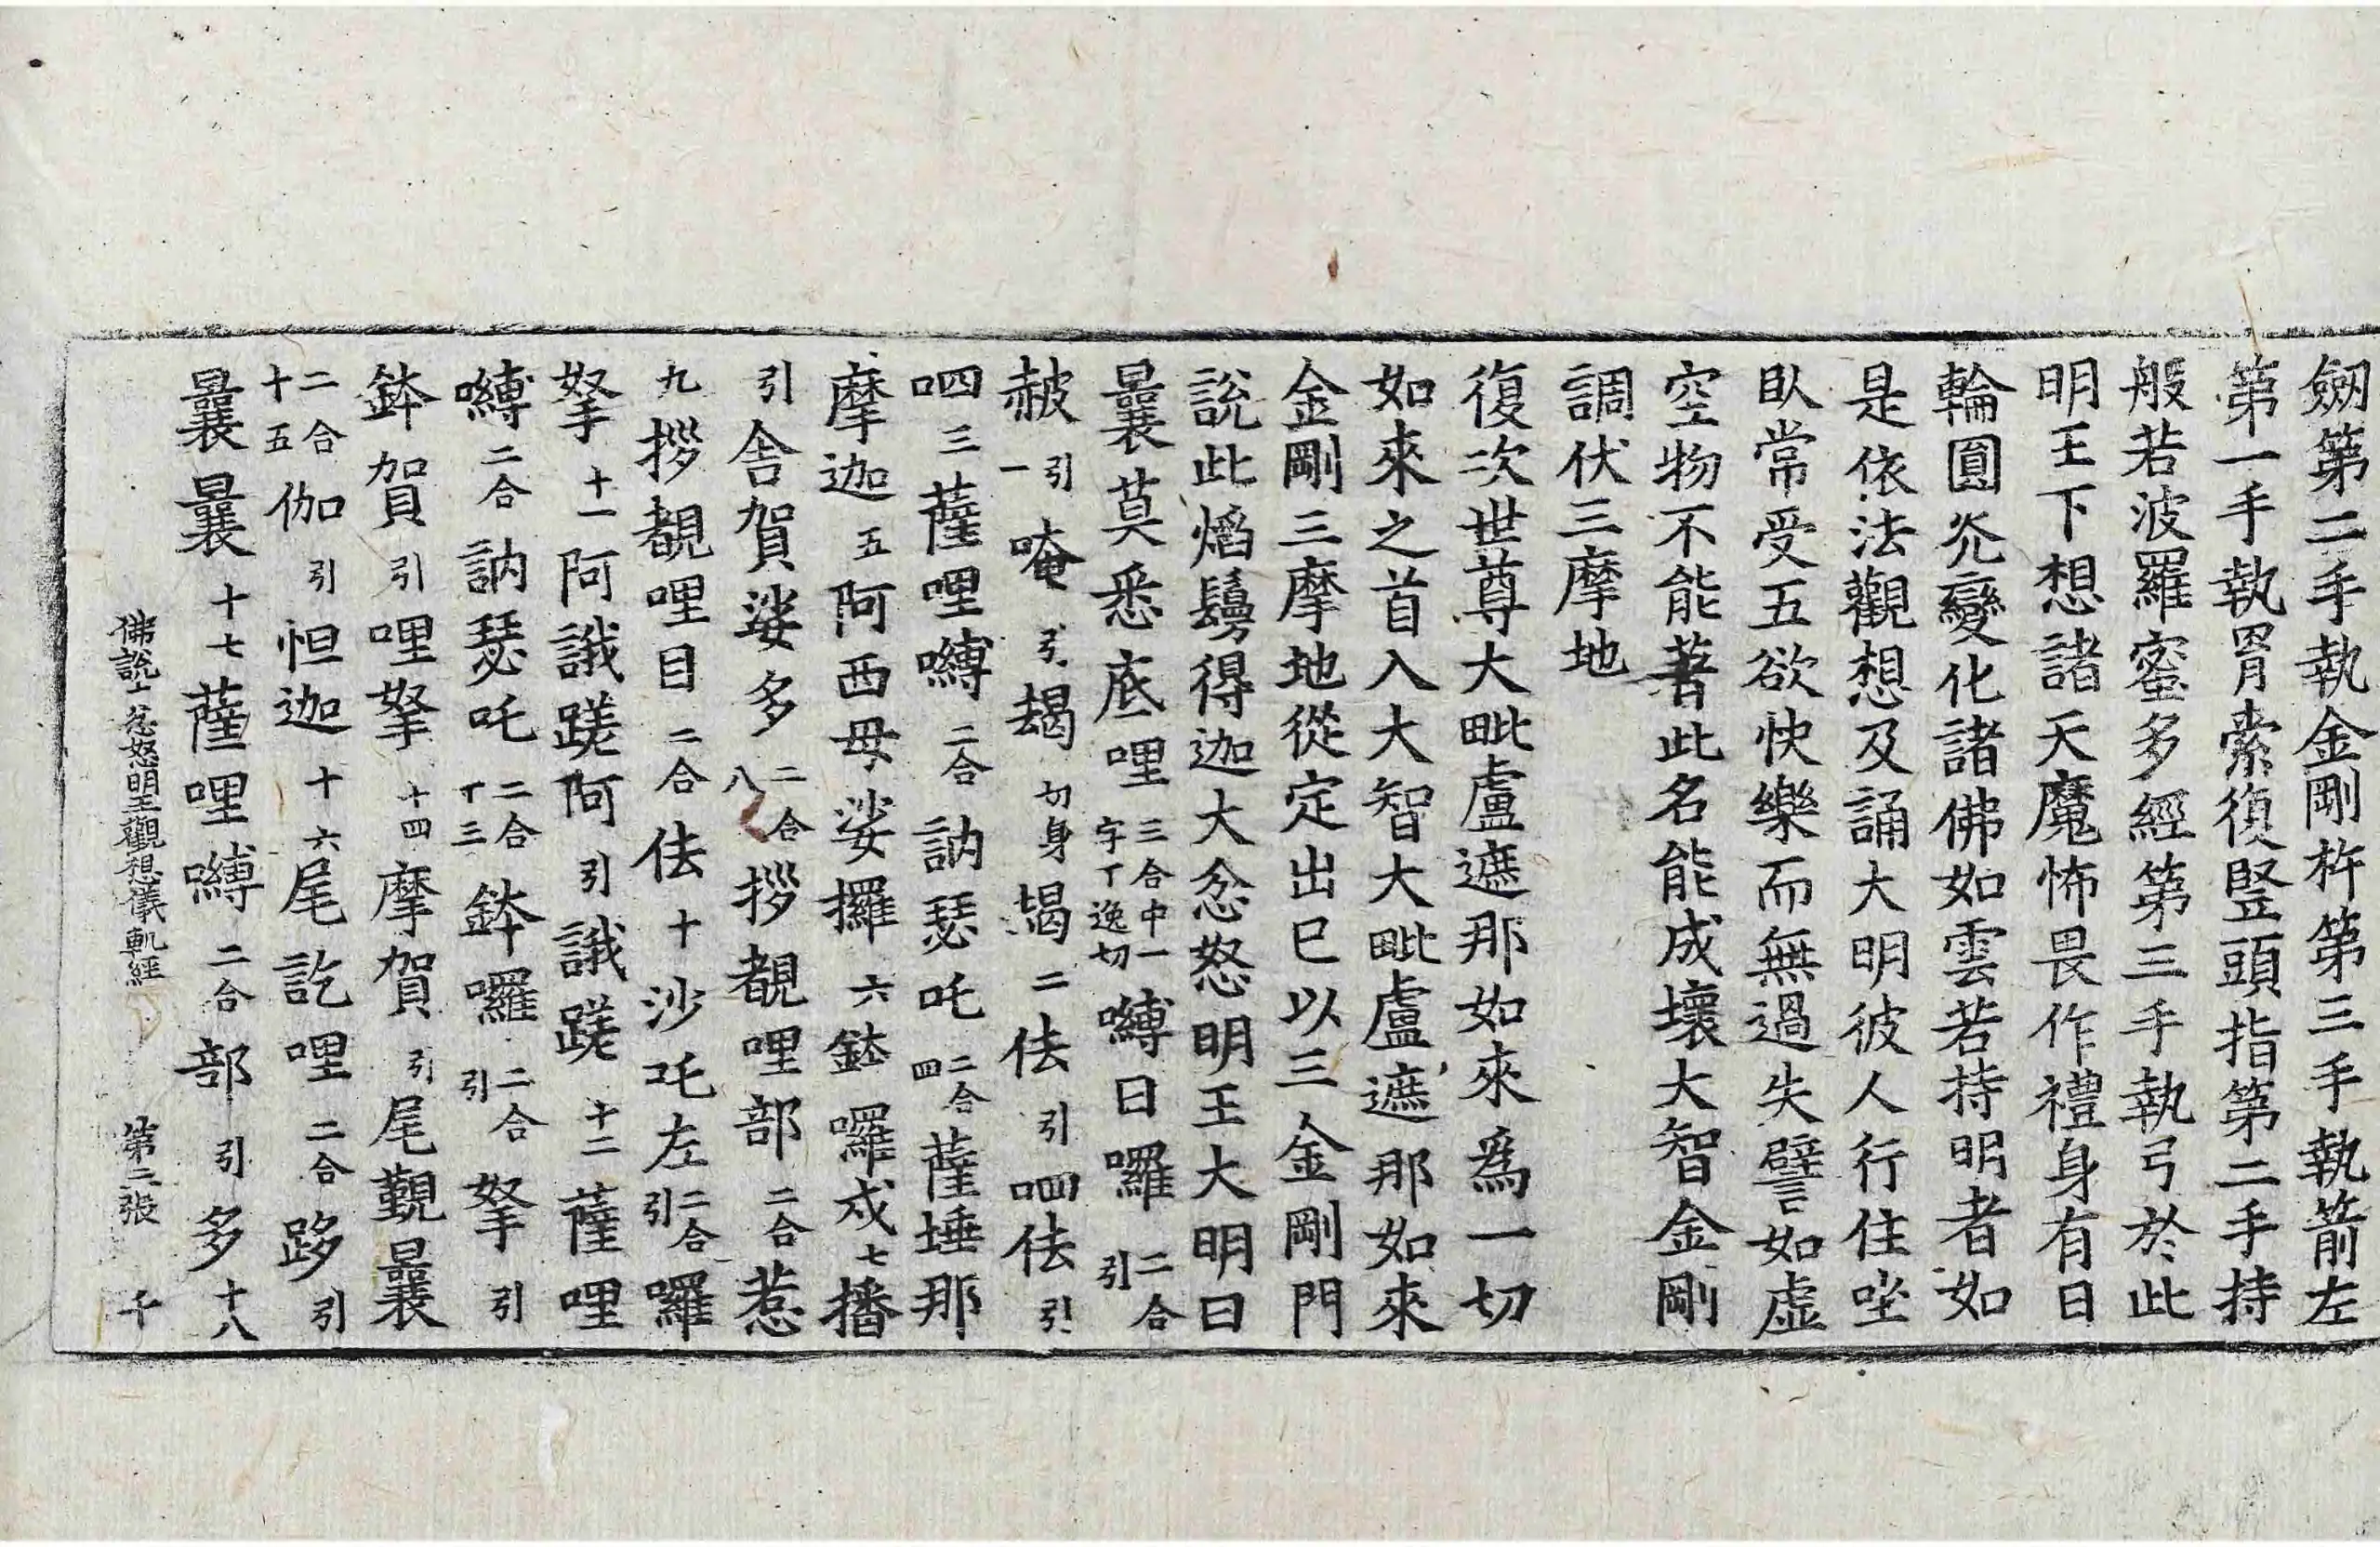 劒第二手執金剛杵第三手執箭左
第一手執罥索復竪頭指第二手持
般若波羅蜜多經第三手執弓於此
明王下想諸天魔怖畏作禮身有日
輪圓光變化諸佛如雲若持明者如
是依法觀想及誦大明彼人行住坐
臥常受五欲快樂而無過失譬如虛
空物不能著此名能成壞大智金剛
調伏三摩地
復次世尊大毗盧遮那如來爲一切
如來之首入大智大毗盧遮那如來
金剛三摩地從定出已以三金剛門
說此焰鬘得迦大忿怒明王大明曰
曩莫悉底哩三合中一字丁逸切嚩日囉二合引
赧引一唵引朅切身朅二佉引呬佉引
呬三薩哩嚩二合訥瑟吒二合四薩埵那
摩迦五阿西母娑攞六鉢囉戍七播
引舍賀娑多二合八拶覩哩部二合惹
九拶覩哩目二合佉十沙吒左二合引囉
拏十一阿誐蹉阿引誐蹉十二薩哩
嚩二合訥瑟吒二合十三鉢囉二合引拏引
鉢賀引哩拏十四摩賀引尾覲曩
二合十五伽引怛迦十六尾訖哩二合跢引
曩曩十七薩哩嚩二合部引多十八
佛說忿怒明王觀想儀軌經 第二張 千